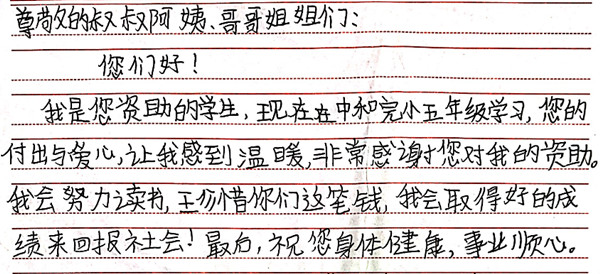 尊敬的叔叔阿姨、哥哥姐姐们：
您们好！
我是您资助的学生，现在在中和完小五年级学习，您的
付出与爱心，让我感到温暖，非常感谢您对我的资助。
我会努力读书，珍惜你们这笔钱，我会取得好的成
绩来回报社会！最后，祝您身体健康，事业顺心。